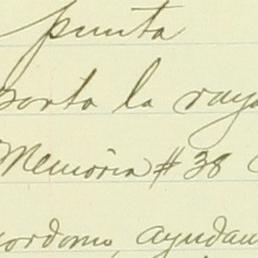 punta
porta la raya
Memoria # 38
ordomo, ayudan